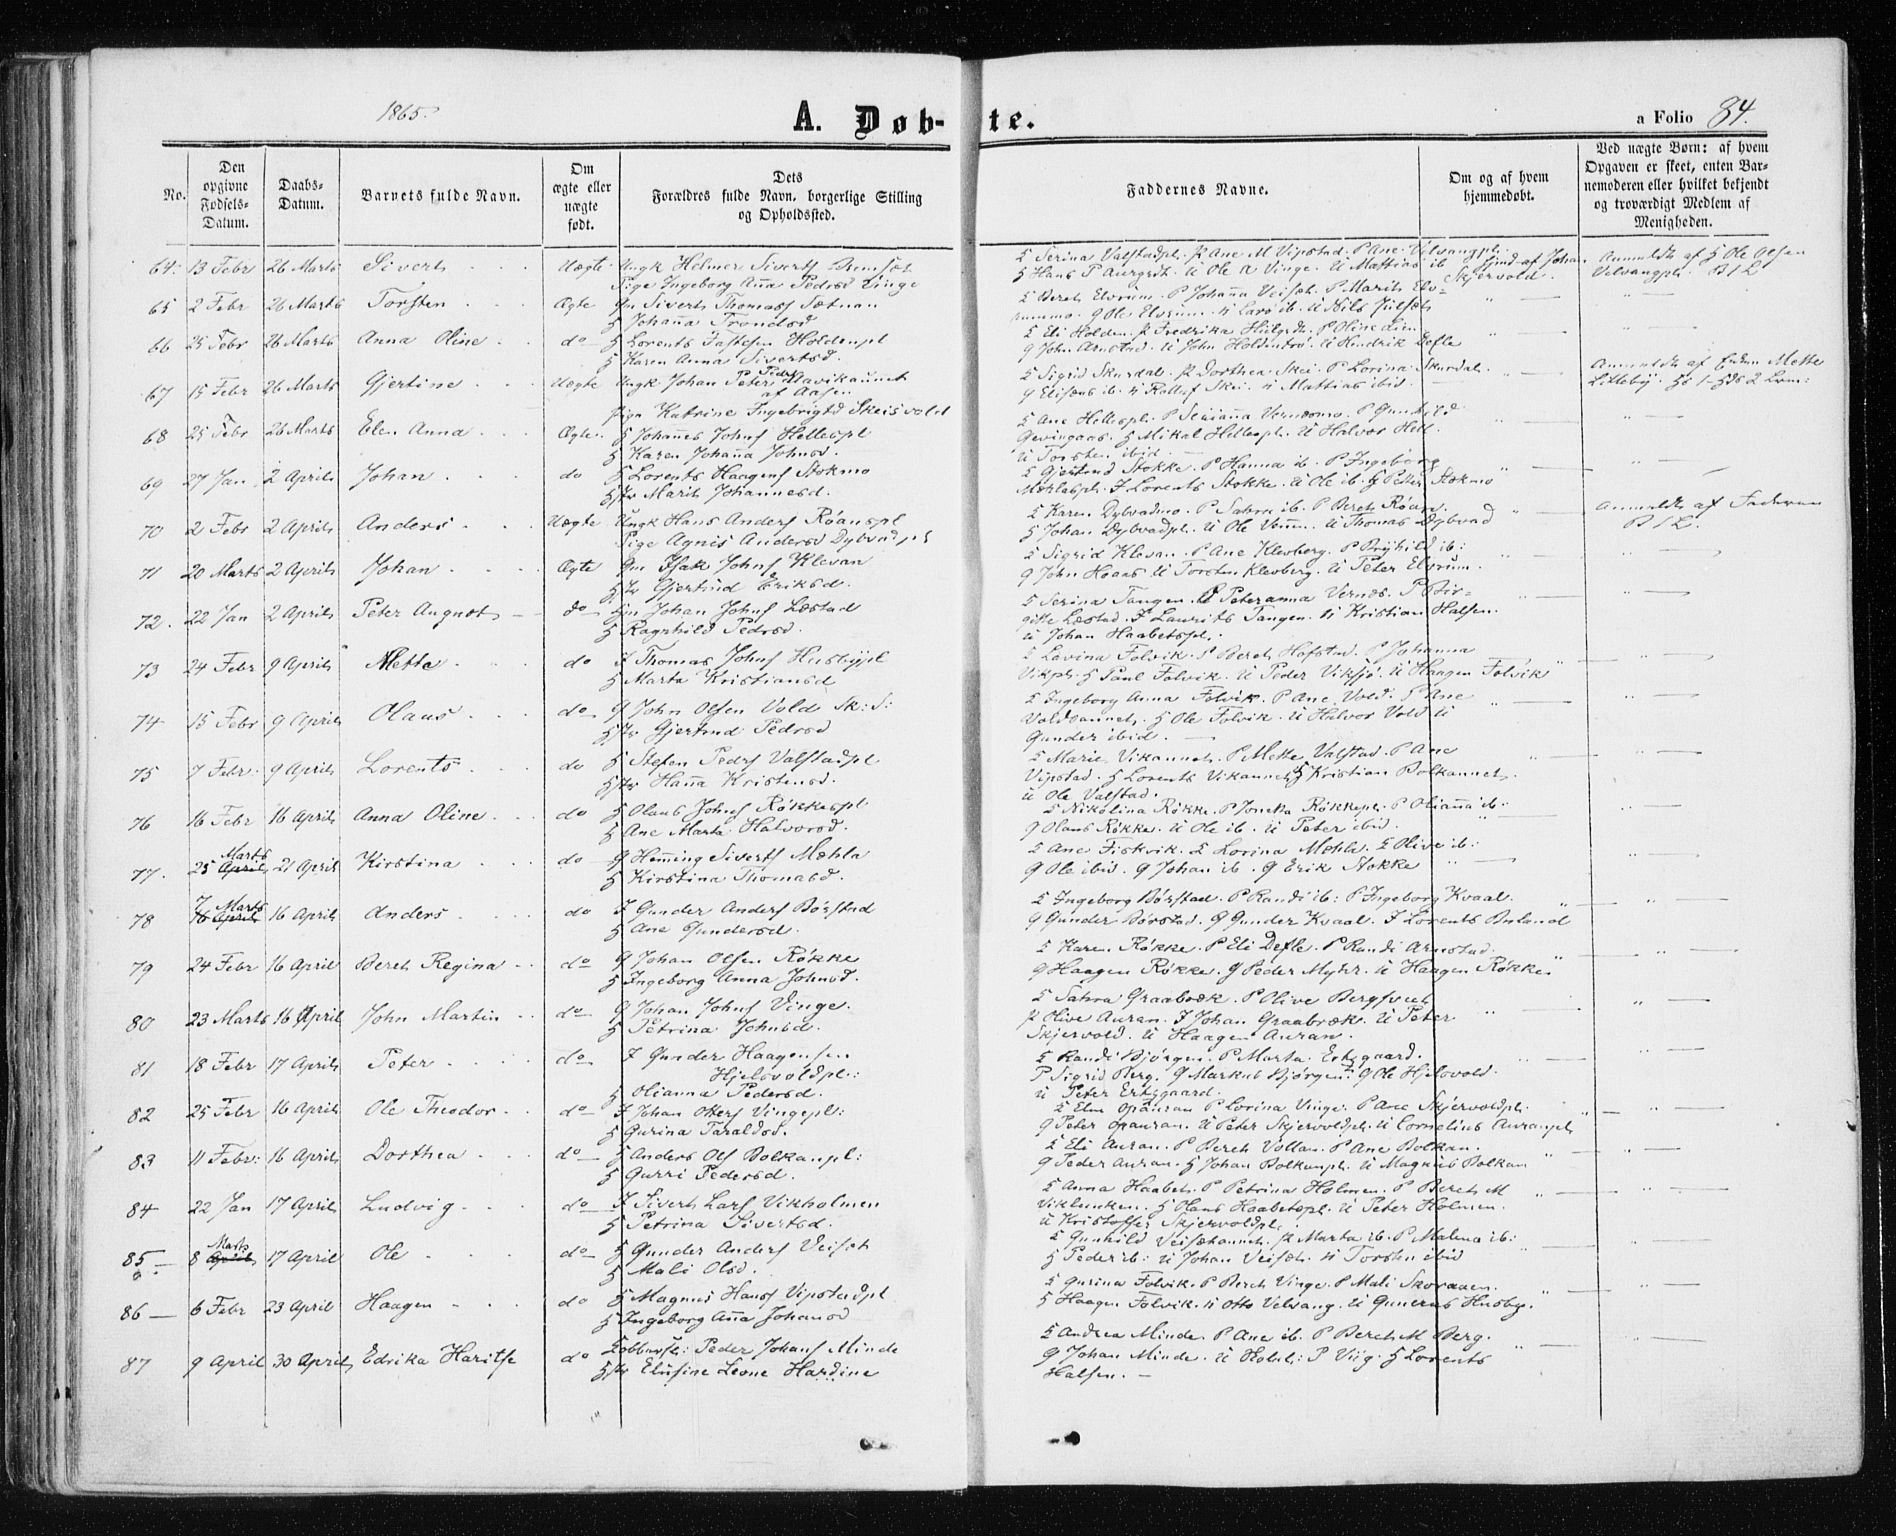 1865.
A. Døb-te.
a Folio 84.
No.
Den opgivne Fødsels-Datum.
Daabs-Datum.
Barnets fulde Navn.
Om ægte eller uægte født.
Dets Forældres fulde Navn, borgerlige Stilling og Opholdssted.
Faddernes Navne.
Om og af hvem hjemmedøbt.
Ved uægte Børn: af hvem Opgaven er skeet, enten Barnemoderen eller hvilket bekjendt og troværdigt Medlem af Menigheden.
64. 13 Febr 26 Marts Sivert Uægte Ungk Helmer Siverts
Pige Ingeborg Anna Pedersd Vinge
65 2 Febr 26 Marts Torsten Ægte Gm Sivert Thomass Tætnan
H Johanna Trondsd
66 25 Febr 26 Marts Anna Oline do H Lorents Holdenpl
H Karen Anna Sivertsd.
67 15 Febr 26 Marts Gjertine Uægte Ungk Johan Peter Peders Mavikaunet
af Aasen
Pige Katrine Ingebrigtsd Skeisvold
68 25 Febr 26 Marts Elen Anna Ægte H Johannes Johns Hellespl
H Karen Johanna Johnsd.
69 27 Jan 2 April Johan do H Lorents Haagens Stokmo
Hstr Marit Johannesd.
70 2 Febr 2 April Anders Uægte Ungk Hans Anders Røaaspl
Pige Agnis Andersd Dybvadpl
71 20 Marts 2 April Johan Ægte Gm Isak Johns Klevan
Hstr Gjertrud Eriksd.
72. 22 Jan 2 April Peter August do Johan Johns Læstad
H Ragnhild Pedersd.
73 24 Febr 9 April Mette do I Thomas Johns Husbypl
H Marta Kristiansd
74 15 Febr 9 April Olaus do G John Olsen Vold Sk: S:
Hstr Gjertrud Pedersd
75 7 Febr. 9 April Lorents do H Stefen Peders Valstadpl
Hstr Hanna Kristensd.
76 16 Febr 16 April Anna Oline do H Olaus Johns Røkkespl.
H Ane Marta Halvorsd.
77. 25 Marts 21 April Kirstina do G Henning Siverts Mæhla
H Kirstina Thomasd.
78 7 Marts 16 April Anders do I Gunder Anders Børstad
H Ane Gundersd.
79 24 Febr 16 April Beret Regina do G Johan Olsen Røkke
H Ingeborg Anna Johnsd.
80 23 Marts 16 April John Martin do G Johan Johns Vinge.
H Petrina Johnsd.
81 18 Febr 17 April Peter do I Gunder Haagensen
Hjelsvoldpl:
H Olianna Pedersd.
82 25 Febr 16 April Ole Theodor do I Johan Otters Vingepl:
H Gurina Taraldsd.
83 11 Febr: 16 April Dorthea do H Anders Ols Bolkanpl:
H Gurri Pedersd.
84 22 Jan 17 April Ludvig do I Sivert Lars Vikholmen
H Petrina Sivertsd.
85 8 Marts 17 April Ole do H Gunder Anders Veiset
H Mali Olsd.
86 6 Febr 23 April Haagen do H Magnus Hans Vipstadpl
H Ingeborg Anna Johansd
87 9 April 30 April Edrika Haritse do Peder Johans Minde
Hstr Elusine Leone Hardine
Serina Valstadpl. Ane M Vipstad. P Ane Velvangpl.
H Hans P U Ole A Vinge. U Mattias ib
Hind af Johan Skjervold
Anmeldt af H Ole Olsen
Velvangpl. B 1 L
Beret Elvrum. P Johanna Veiset. P Marit
G Ole Elvrum. U Lars ib. U Nils
Eli Holden. Fredrika P Oline Lien
G John Arnstad. U John U Hendrik Defle
Sigrid Skurdal. Dorthea Skei. P Lorina Skurdal.
G Eliseus ib. U Rollef Skei. U Mattias ibid
Anmeldt af Mette
Ane Hellespl. P Gunhild
Gevingaas. H Mikal Hellespl. U Halvor Hell.
U Torsten ibid.
Gjertrud Stokke. P Hanna ib. P Ingeborg
Mæhlaspl. I Lorents Stokke. U Ole ib. G Peter Stokmo
Karen Dybvadmo. P Sahra ib. P Beret Røaas.
H Johan Dybvadpl. U Ole U Thomas Dybvad
Anmeldt af Faderen
B 1 L.
Sigrid Klevan. P Ane Kleoberg. P Brynhild ib:
G John Hoaas U Torsten Kleoberg. U Peter Elvrum.
Serina Tangen. P Peteranna Vernes. P Bir-
gitte Læstad. I Laurits Tangen. U Kristian Halsen.
U Johan Haabetspl.
Lovina Folvik. P Beret Hofstad. P Johanna
Vikpl. H Paul Folvik. U Peder Viksjø. U Haagen Folvik
Ingeborg Anna Folvik. P Ane Vold. P Ane
Voldaunet. H Ole Folvik. U Halvor Vold U
Gunder ibid.
Marie Vikaunet. P Mette Valstad. P Ane
Vipstad. H Lorents Vikaunet. H Kristian Bolkaunet.
U Ole Valstad.
Nikolina Røkke. P Joneka Røkkepl. P Olianna ib:
G Olaus Røkke. U Ole ib. U Peter ibid.
Ane Fiskvik. Lorina Mæhla. Olive ib:
G Ole ibid. G Johan ib. G Erik Stokke
Ingeborg Børstad. P Randi ib: P Ingeborg Kvaal.
G Gunder Børstad. G Gunder Kvaal. I Lorents
Karen Røkke. P Eli Defle. P Randi Arnstad.
G Haagen Røkke. G Peder Myhr. U Haagen Røkke.
Sahra Graabræk. P Olive
Olive Auran. I Johan Graabræk. U Peter
Skjervold. U Haagen Auran.
Randi Bjørgen. P Marta Ertsgaard.
P Sigrid Berg. G Markus Bjørgen. G Ole Hjelsvold.
U Peter Ertsgaard.
Elen Opauran P Lorina Vinge. P Ane Skjervoldpl.
G Peter Opauran. U Peter Skjervoldpl. U Cornelius Auranpl
Eli Auran. P Beret Vollan. P Ane Bolkan.
G Peder Auran. H Johan Bolkanpl. U Magnus Bolkan
Anna Haabet. P Petrina Holmen. P Beret M
Viklunken. H Hans Haabetspl. U Peter Holmen.
U Kristoffer Skjervoldpl.
Gunhild Veisetaunet. Marta ib. P Malena ib:
H Peder ib: U Johan Veiset. U Torsten ibid
Gurina Folvik. P Beret Vinge. P Mali
H Haagen Folvik. U Otto Velvang. U Gunerus Husby.
Andrea Minde. P Ane ib. P Beret M Berg.
G Johan Minde. P Viig. H Lorents
Halsen.